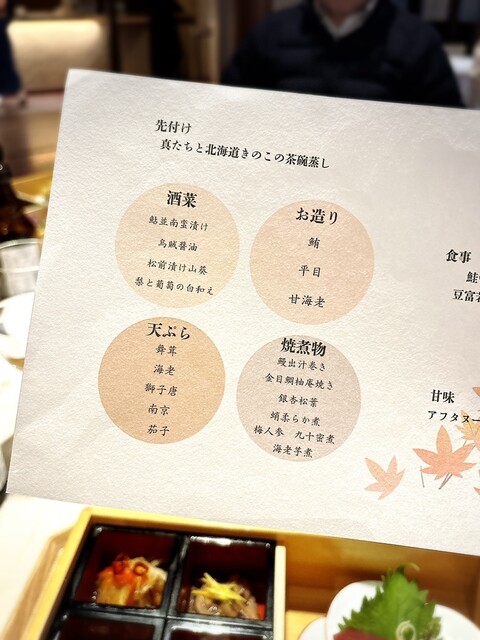 先付け
真たちと北海道きのこの茶碗蒸し
酒菜
鮎並南蛮漬け
烏賊醤油
松前漬け山葵
梨と葡萄の白和え
お造り
鮪
平目
甘海老
天ぷら
舞茸
海老
獅子唐
南京
茄子
焼煮物
鰻出汁巻き
金目鯛柚庵焼き
銀杏松葉
蛸柔らか煮
梅人参 九十蜜煮
海老芋煮
食事
鮭
豆富
甘味
アフタヌー